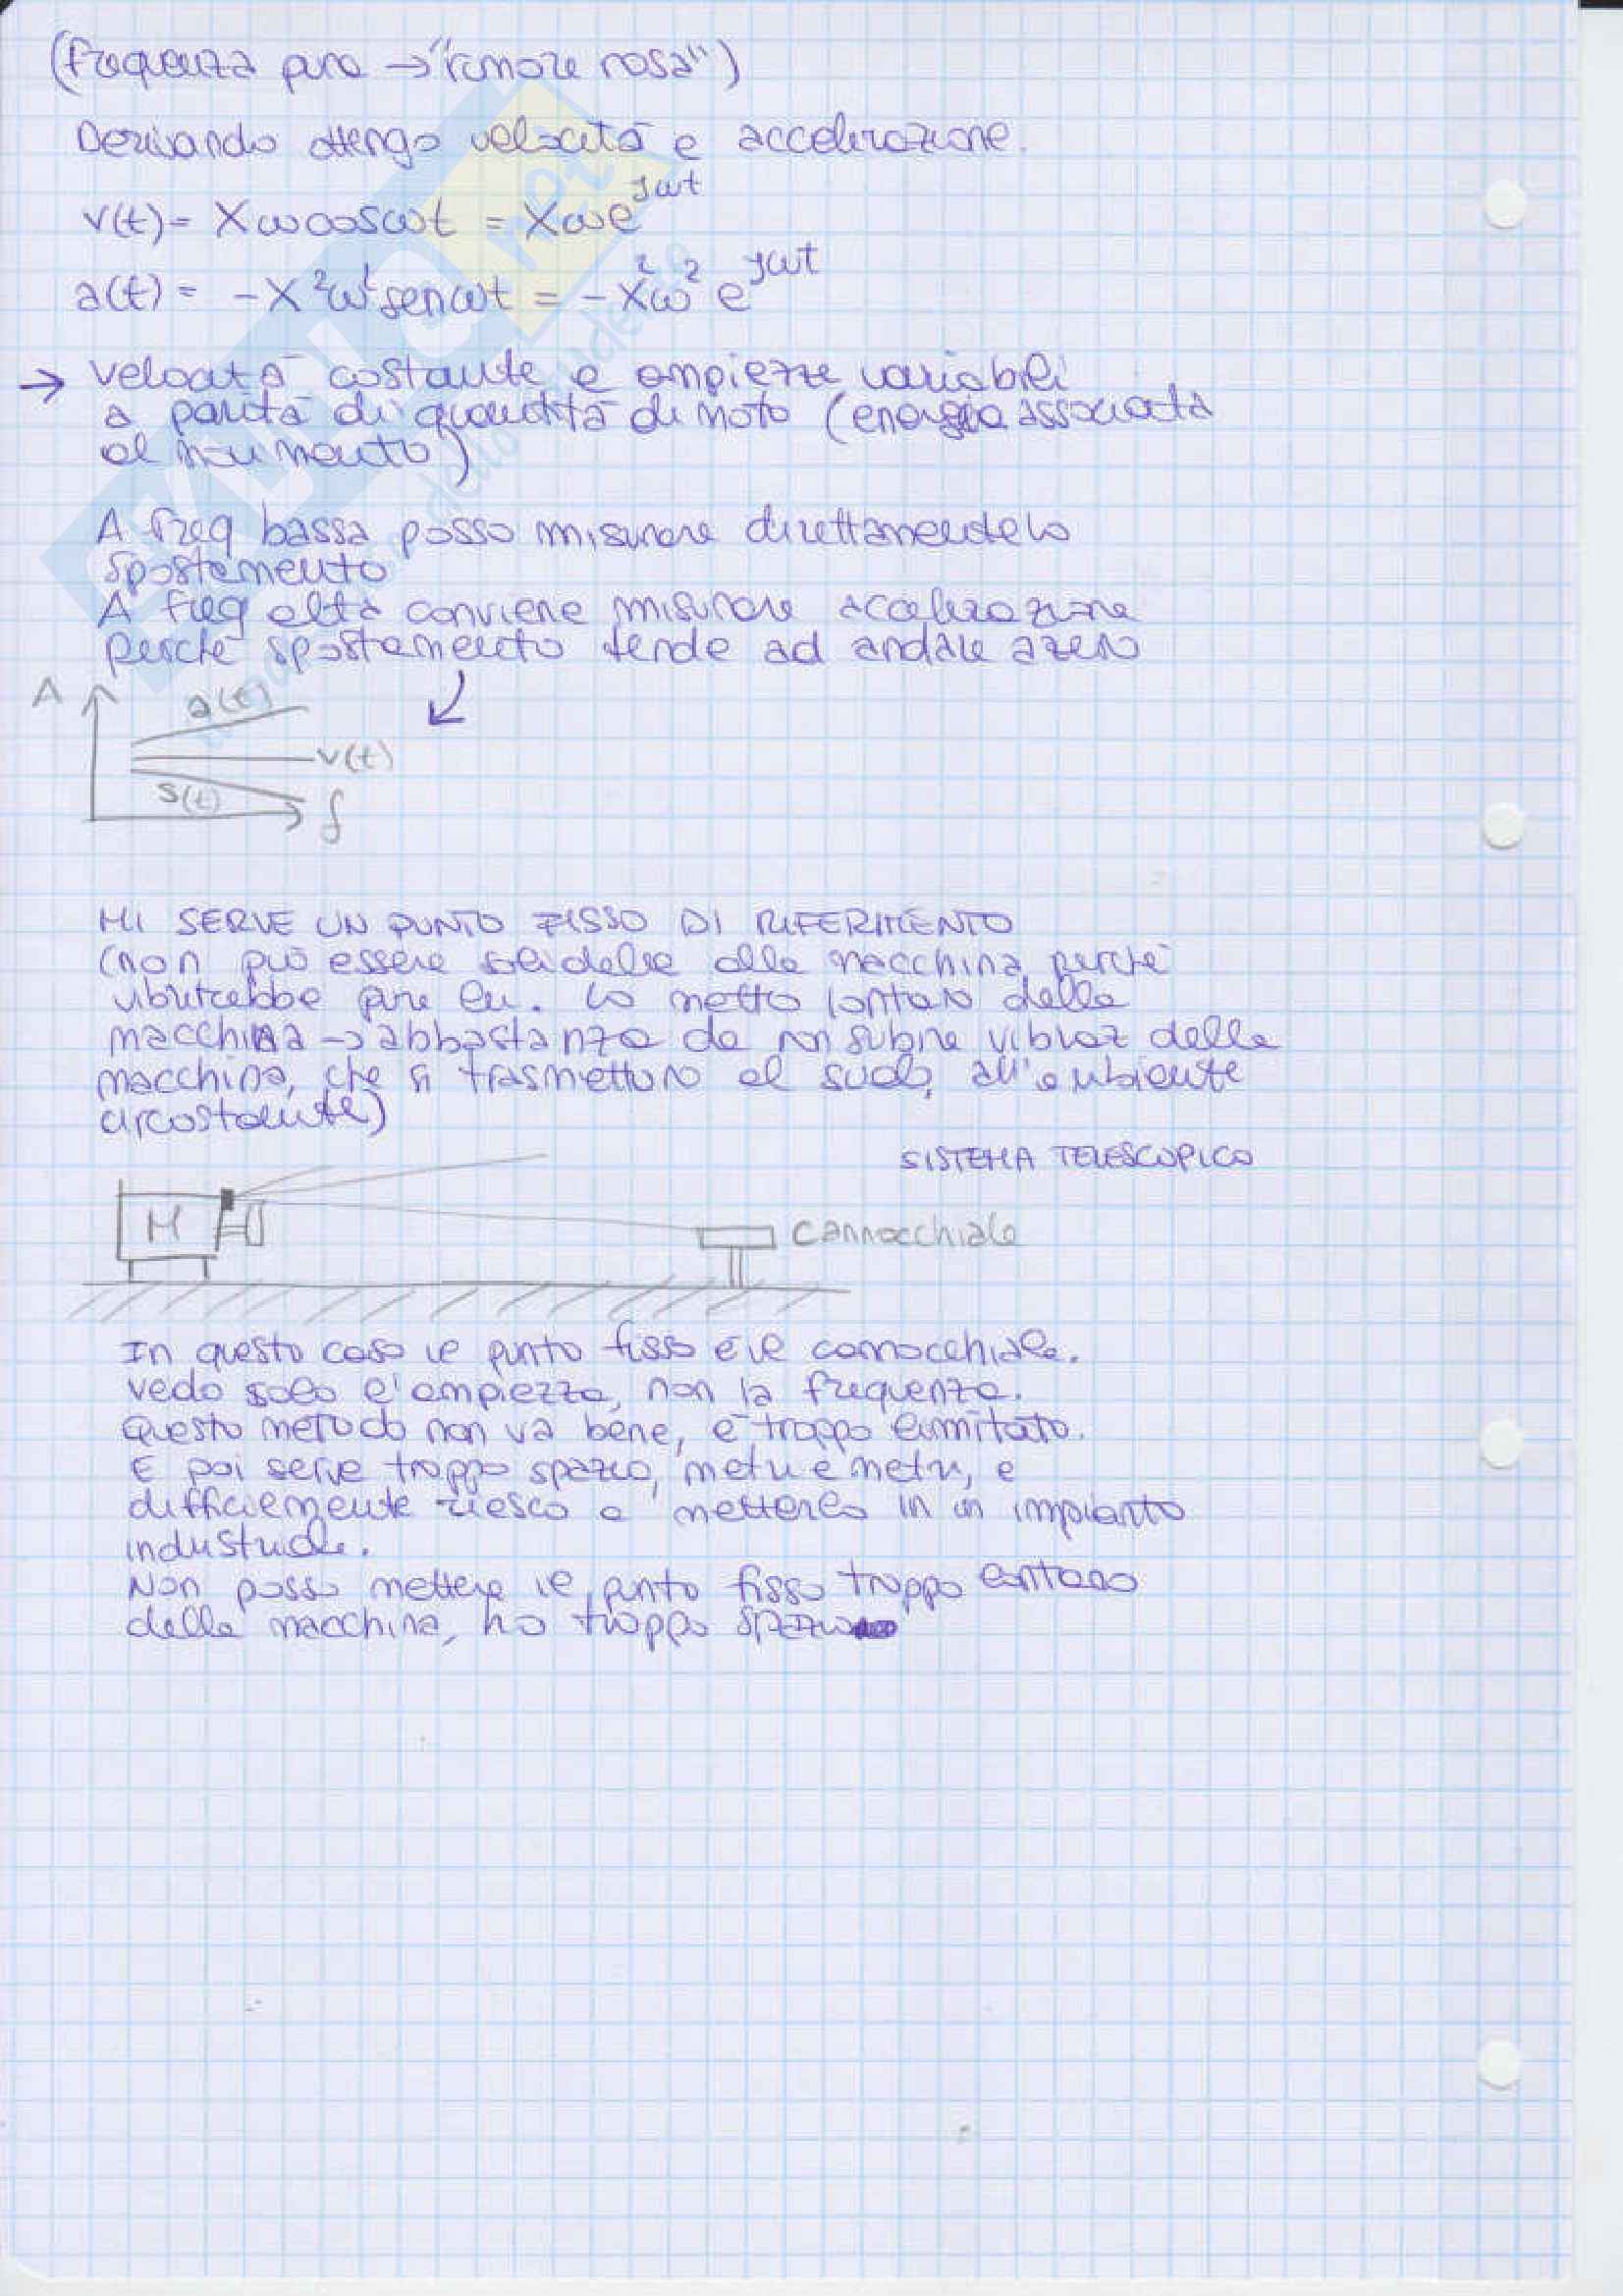 (frequenza pura → "rumore rosa")
Derivando ottengo velocità e accelerazione.
v(t) = Xω cosωt = Xωe^jωt
a(t) = -X²ω² senωt = -X²ω² e^jωt
→ velocità costante e ampiezze variabili
a parità di quantità di moto (energia associata
al movimento)
A freq bassa posso misurare direttamente lo
spostamento
A freq alta conviene misurare accelerazione
perchè spostamento tende ad andare a zero
A
a(t)
v(t)
s(t)
f
MI SERVE UN PUNTO FISSO DI RIFERIMENTO
(non può essere solidale alla macchina perchè
vibrerebbe pure lui. Lo metto lontano dalla
macchina → abbastanza da non subire vibraz della
macchina, che si trasmettono al suolo, all'ambiente
circostante)
SISTEMA TELESCOPICO
M
cannocchiale
In questo caso il punto fisso è il cannocchiale.
vedo solo l'ampiezza, non la frequenza.
Questo metodo non va bene, è troppo limitato.
E poi serve troppo spazio, metri e metri, e
difficilmente riesco a metterlo in un impianto
industriale.
Non posso mettere il punto fisso troppo lontano
dalla macchina, ho troppo spazio